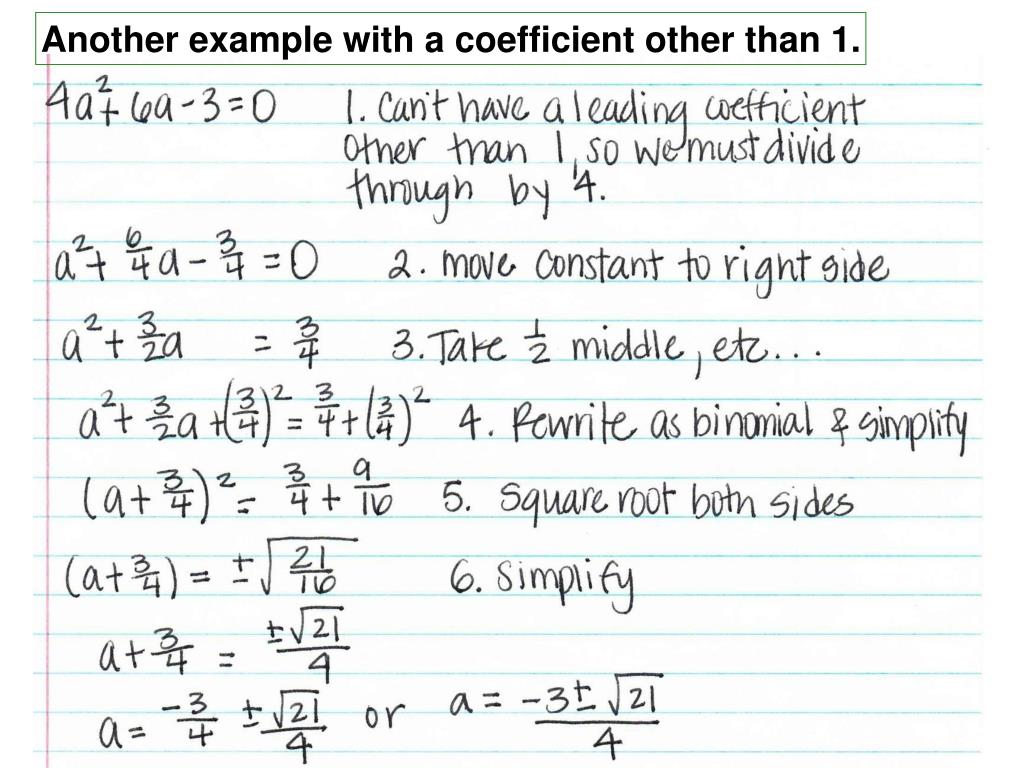 Another example with a coefficient other than 1.
4a²+ 6a - 3 = 0 1. Can't have a leading coefficient
other than 1, so we must divide
through by 4.
a² + 6/4 a - 3/4 = 0 2. move constant to right side
a² + 3/2 a = 3/4 3. Take 1/2 middle, etc...
a² + 3/2 a + (3/4)² = 3/4 + (3/4)² 4. Rewrite as binomial & simplify
(a + 3/4)² = 3/4 + 9/16 5. Square root both sides
(a + 3/4) = ±√(21/16) 6. Simplify
a + 3/4 = ±√21/4
a = -3/4 ± √21/4 or a = (-3 ± √21)/4